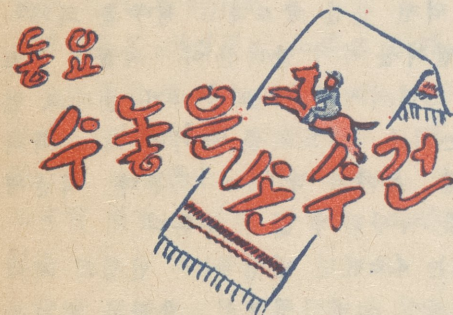 동요
수놓은 손수건